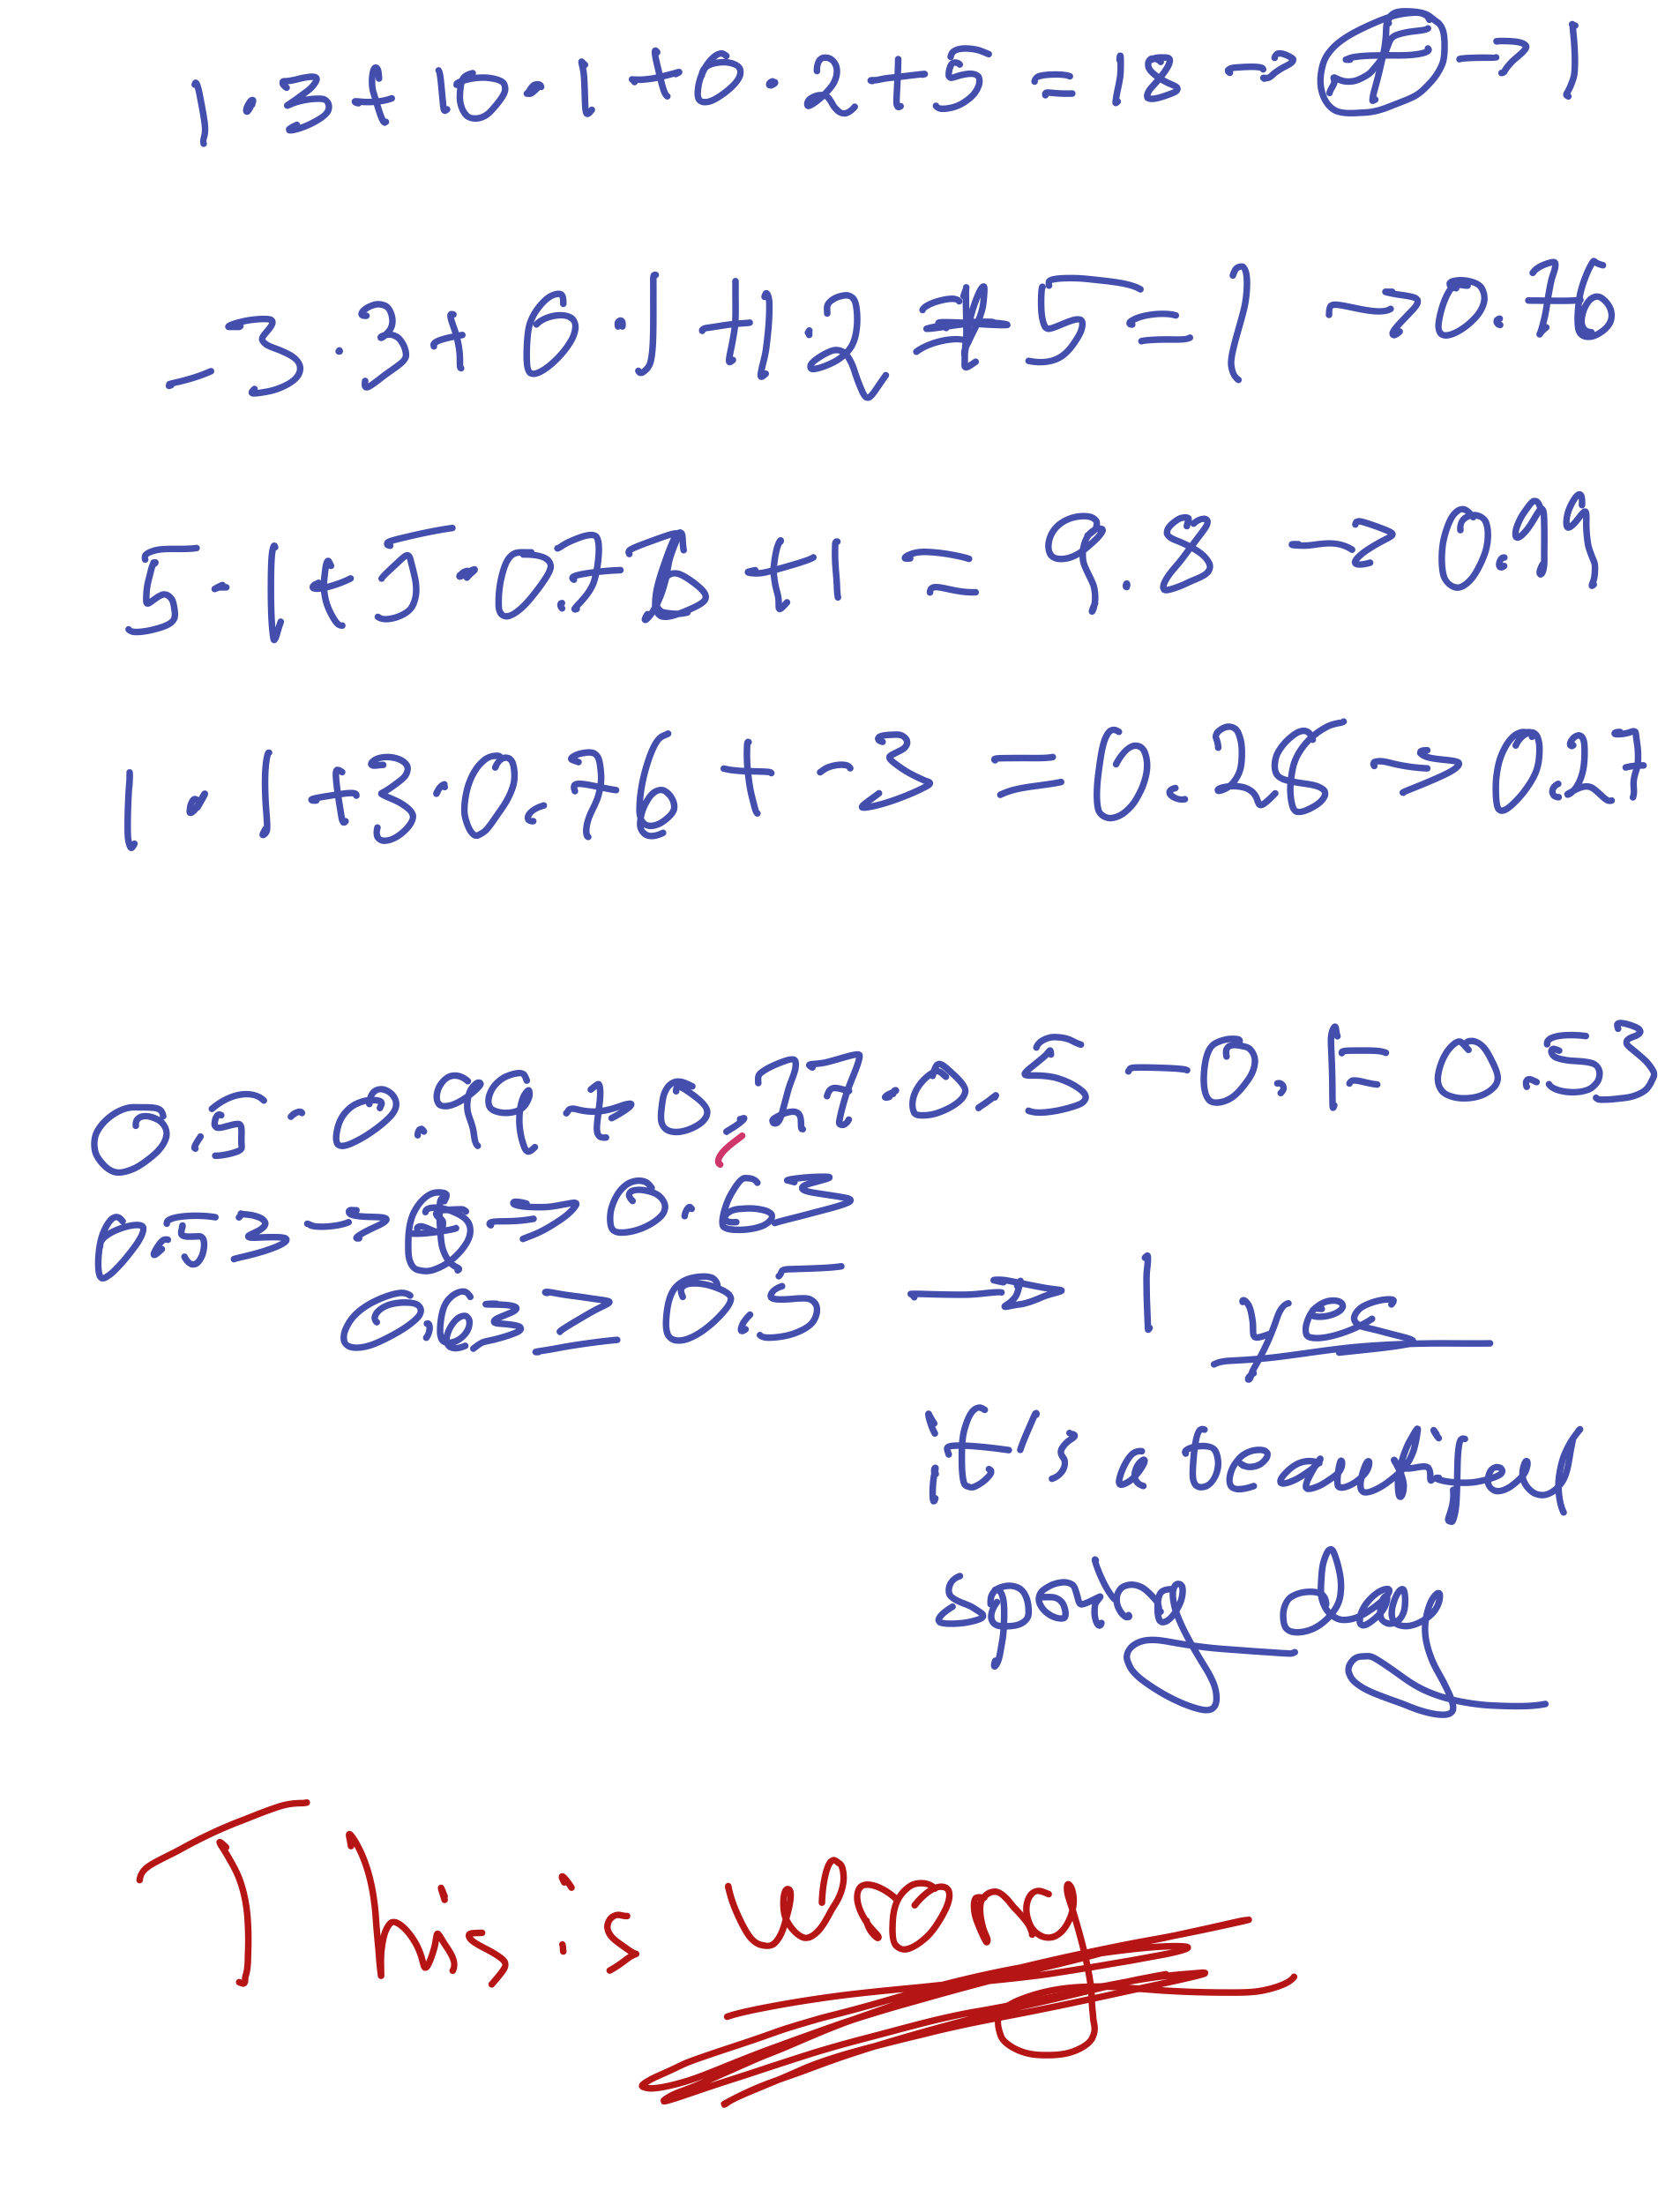 1 · 3 + 10 · 1 + 0 · 2 + 5 = 18 → → 1
-3 · 3 + 6 · 1 + 1 · 2 + 5 = 1 → 0.76
5 · 1 + 5 · 0.76 + 1 = 9.8 → 0.99
1 · 1 + 3 · 0.76 + -3 = 0.26 → 0.27
0.5 · 0.99 + 0,27 · 0.5 - 0.1 = 0.53
0.53 → → 0.63
0.63 ≥ 0.5 → 1 yes
it's a beautiful
day
This is wrong